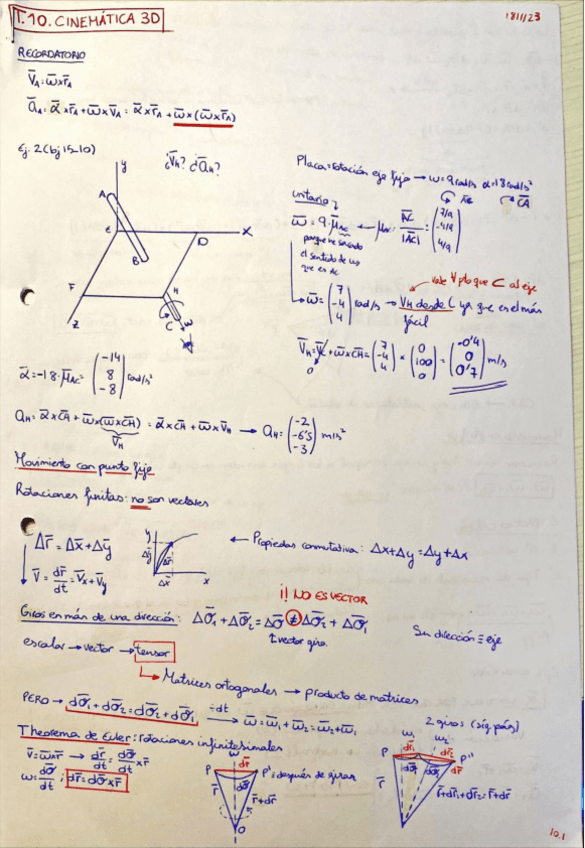 T.10. CINEMÁTICA 3D
18/11/23
RECORDATORIO
V̄A = ω̄ x r̄A
āA = ᾱ x r̄A + ω̄ x V̄A = ᾱ x r̄A + ω̄ x (ω̄ x r̄A)
Ej. 2 (bj 15-10)
¿V̄H? ¿āH?
y
A
E
B
D
x
F
H
C
z
ω
Placa = rotación eje fijo → ω = 9 rad/s α = 18 rad/s²
AC CA
unitario
ω̄ = 9·μ̄AC ← μAC: AC/|AC| = (7/9 -4/9 4/9)
el sentido de
que es AC
→ ω̄ = (7 -4 4) rad/s → V̄H desde C ya que es el más
fácil
vale ∀ pto que C al eje
V̄H = V̄C + ω̄ x CH = (7 -4 4) x (0 100 0) = (-0'4 0 0'7) m/s
0
ᾱ = -18·μ̄AC = (-14 8 -8) rad/s²
aH = ᾱ x CH + ω̄ x (ω̄ x CH) = ᾱ x CH + ω̄ x V̄H → aH = (-2 -6'5 -3) m/s²
VH
Movimiento con punto fijo
Rotaciones finitas: no son vectores
Δr̄ = Δx̄ + Δȳ
y
Δȳ
Δr̄
Δx̄
x
← Propiedad conmutativa: Δx + Δy = Δy + Δx
V̄ = dr̄/dt = V̄x + V̄y
¡¡ NO ES VECTOR
Giros en más de una dirección: Δσ̄1 + Δσ̄2 = Δσ̄ ≠ Δσ̄2 + Δσ̄1
↑vector giro.
Su dirección ≡ eje
escalar → vector → tensor
→ Matrices ortogonales → producto de matrices
PERO → dσ̄1 + dσ̄2 = dσ̄2 + dσ̄1 ÷dt → ω̄ = ω̄1 + ω̄2 = ω̄2 + ω̄1
Theorema de Euler: rotaciones infinitesimales
2 giros (sig. pág)
v̄ = ω̄ x r̄ → dr̄/dt = dσ̄/dt x r̄
ω = dσ̄/dt ; dr̄ = dσ̄ x r̄
ω
P
dr̄
P' = después de girar
dσ̄
r̄
r̄ + dr̄
O
ω1
ω2
P
dr̄1
dr̄2
P''
dr̄
r̄
r̄ + dr̄1 + dr̄2 = r̄ + dr̄
10.1